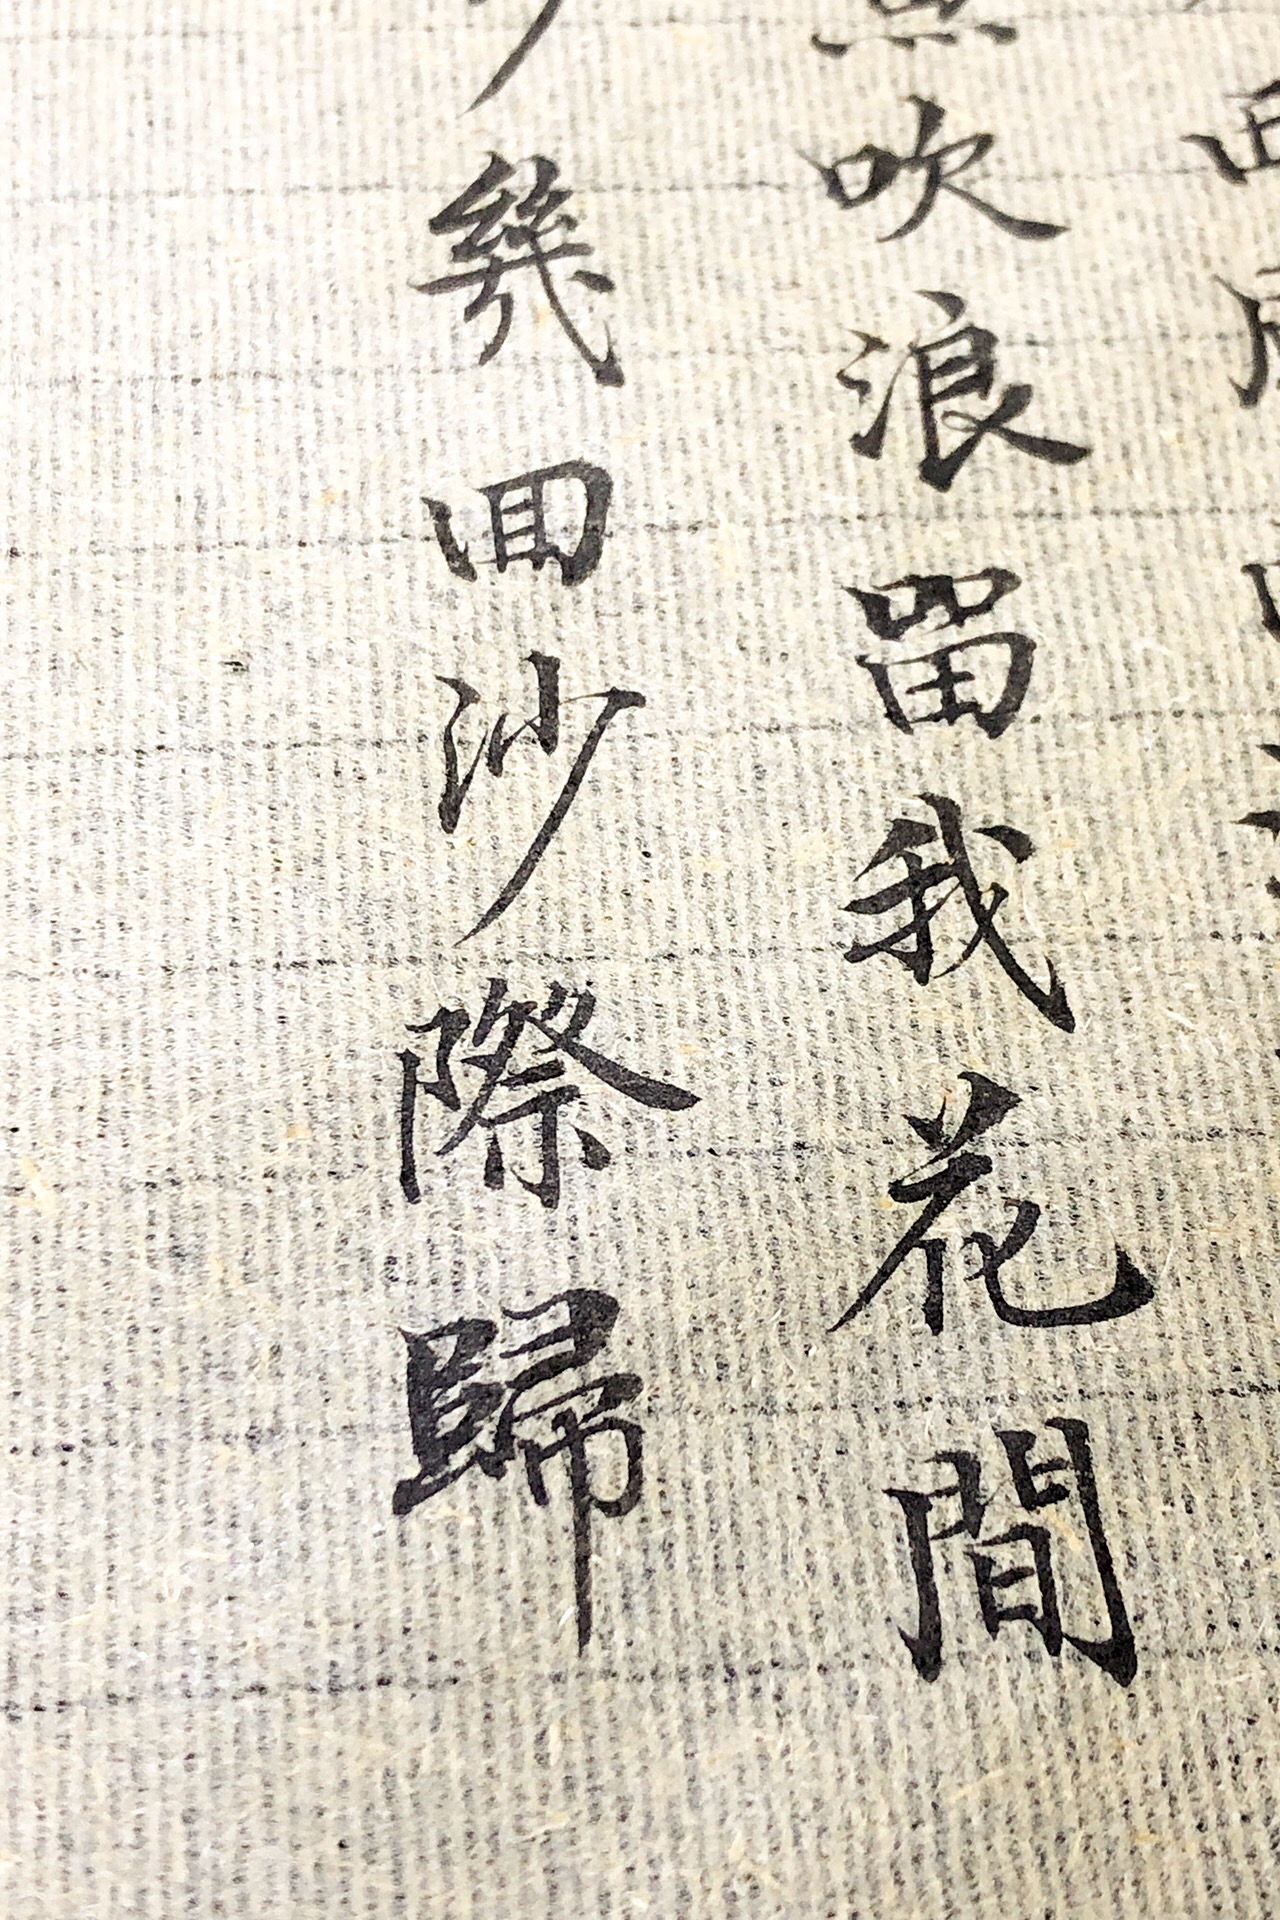 吹浪留我花間
幾囬沙際歸